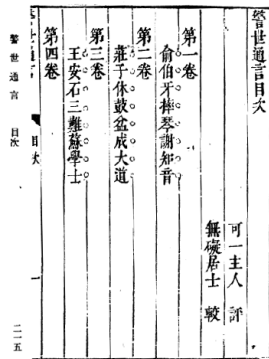 警世通言目次
可一主人　評
無礙居士　較
第一卷
俞伯牙摔琴謝知音
第二卷
莊子休鼓盆成大道
第三卷
王安石三難蘇學士
第四卷
警世通言
目次
一
警世通言　目次
二一五